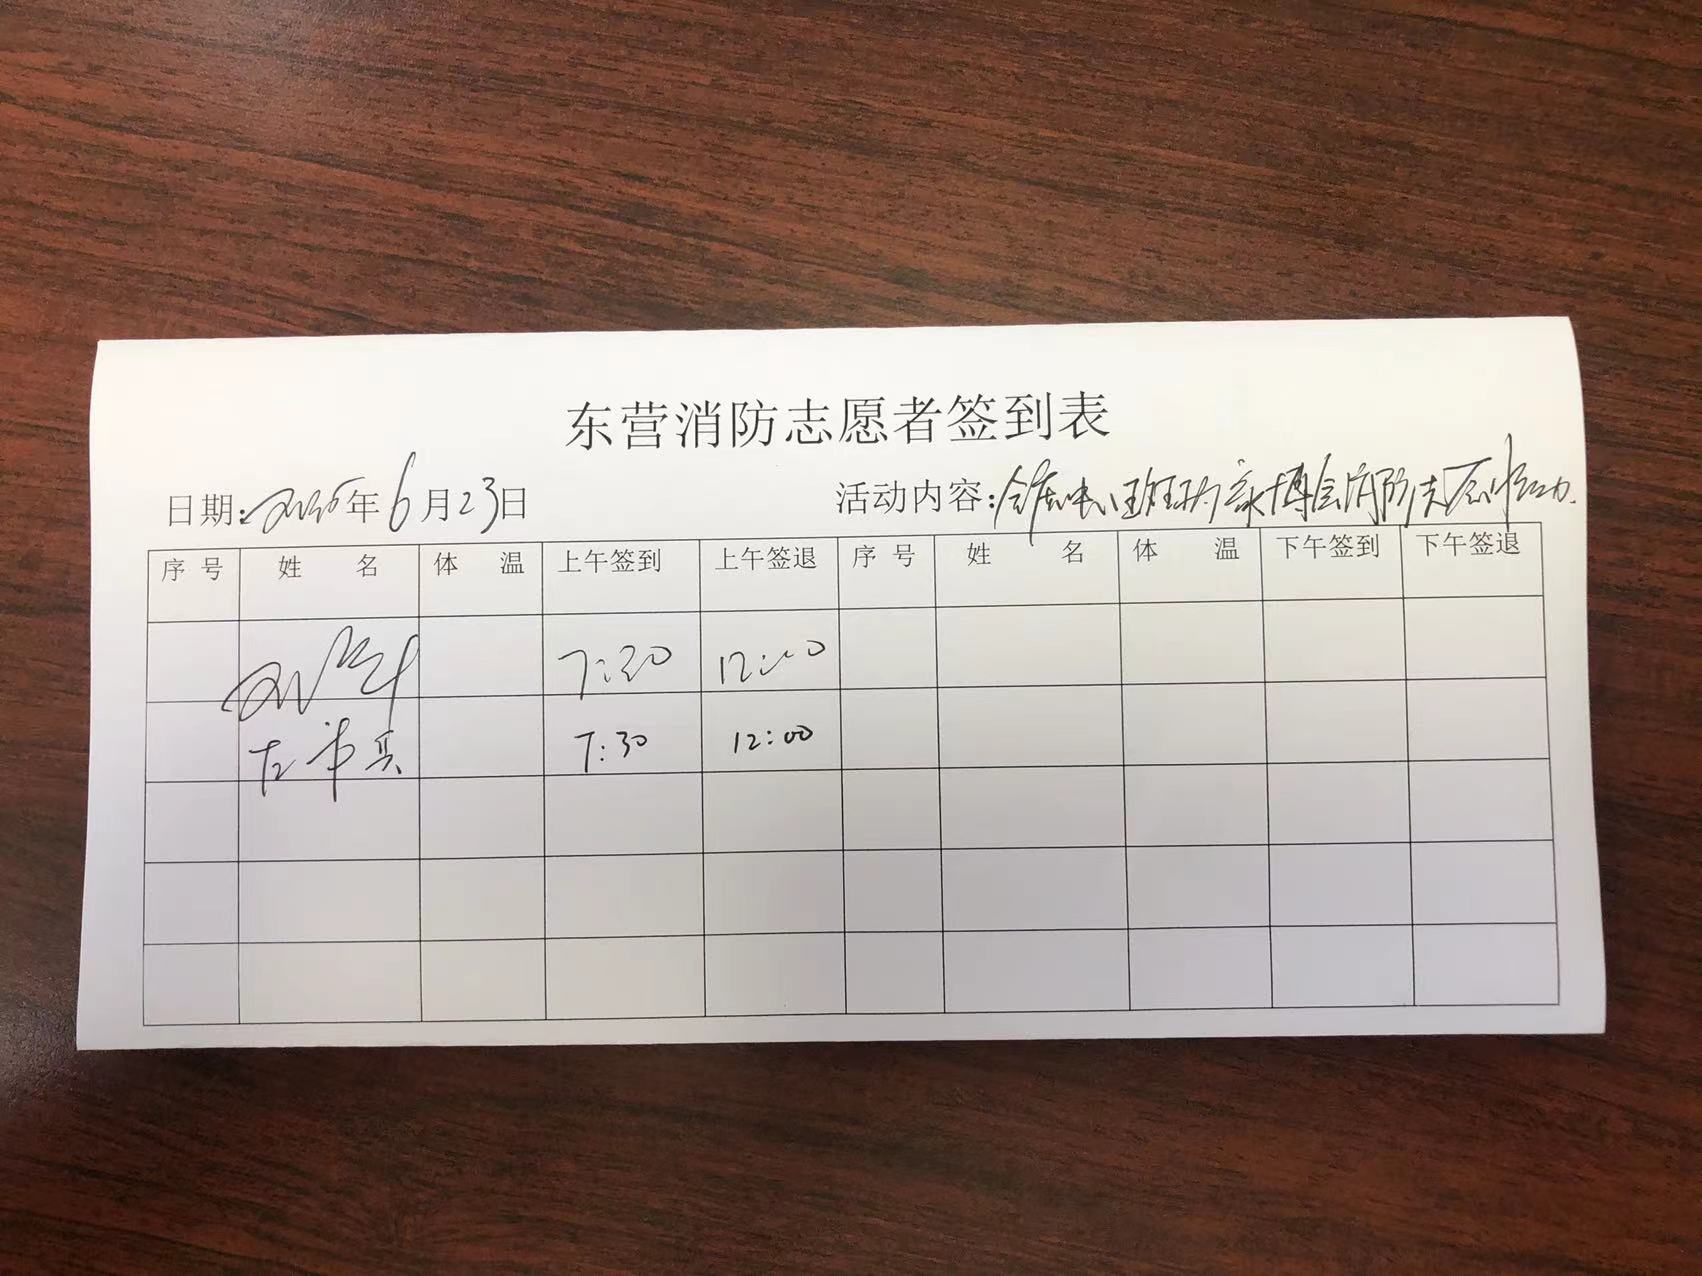 东营消防志愿者签到表
日期: 年6月23日 活动内容: 博会消防志愿
序号 姓名 体温 上午签到 上午签退 序号 姓名 体温 下午签到 下午签退
7:30 12:00
7:30 12:00